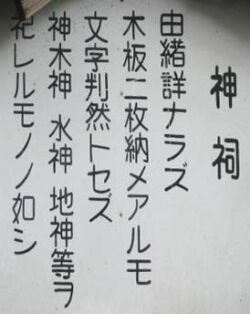 神祠
由緒詳ナラズ
木板二枚納メアルモ
文字判然トセズ
神木神 水神 地神等ヲ
祀レルモノノ如シ